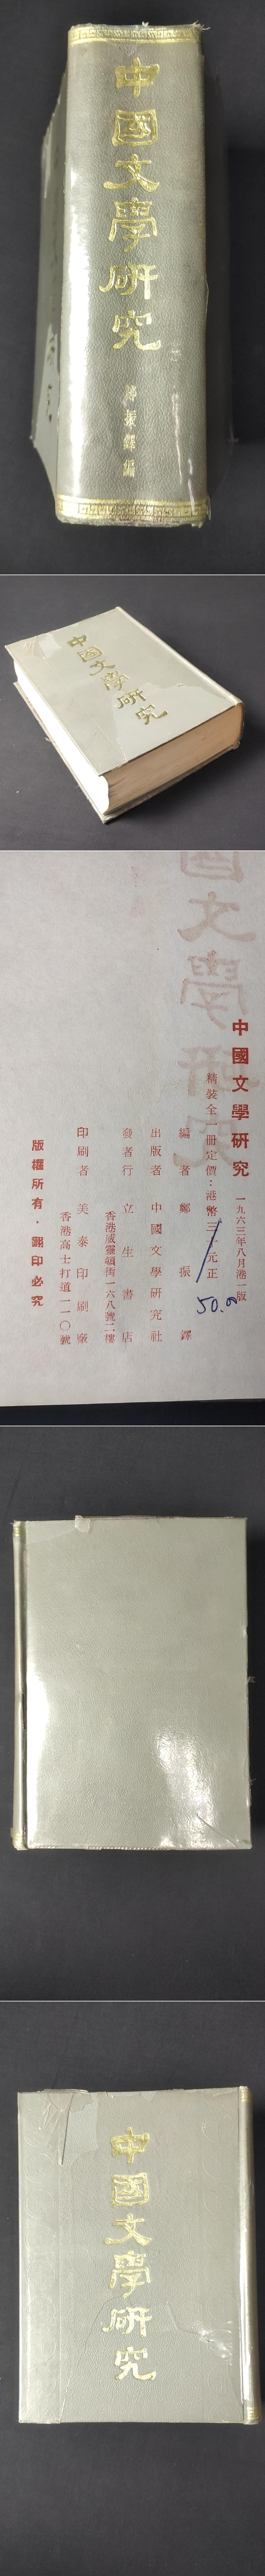 中國文學研究
鄭振鐸編
中國文學研究
國文學研究
中國文學研究 一九六三年八月港一版
精裝全一冊定價：港幣三十元正
50.00
編者 鄭振鐸
出版者 中國文學研究社
發行者 立生書店
香港威靈頓街一六八號二樓
印刷者 美泰印刷廠
香港高士打道一一〇號
版權所有·翻印必究
中國文學研究